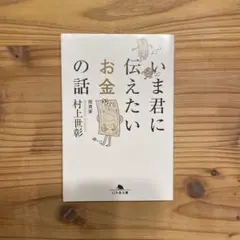 いま君に
伝えたい
お金
の話
投資家
村上世彰
幻冬舎文庫